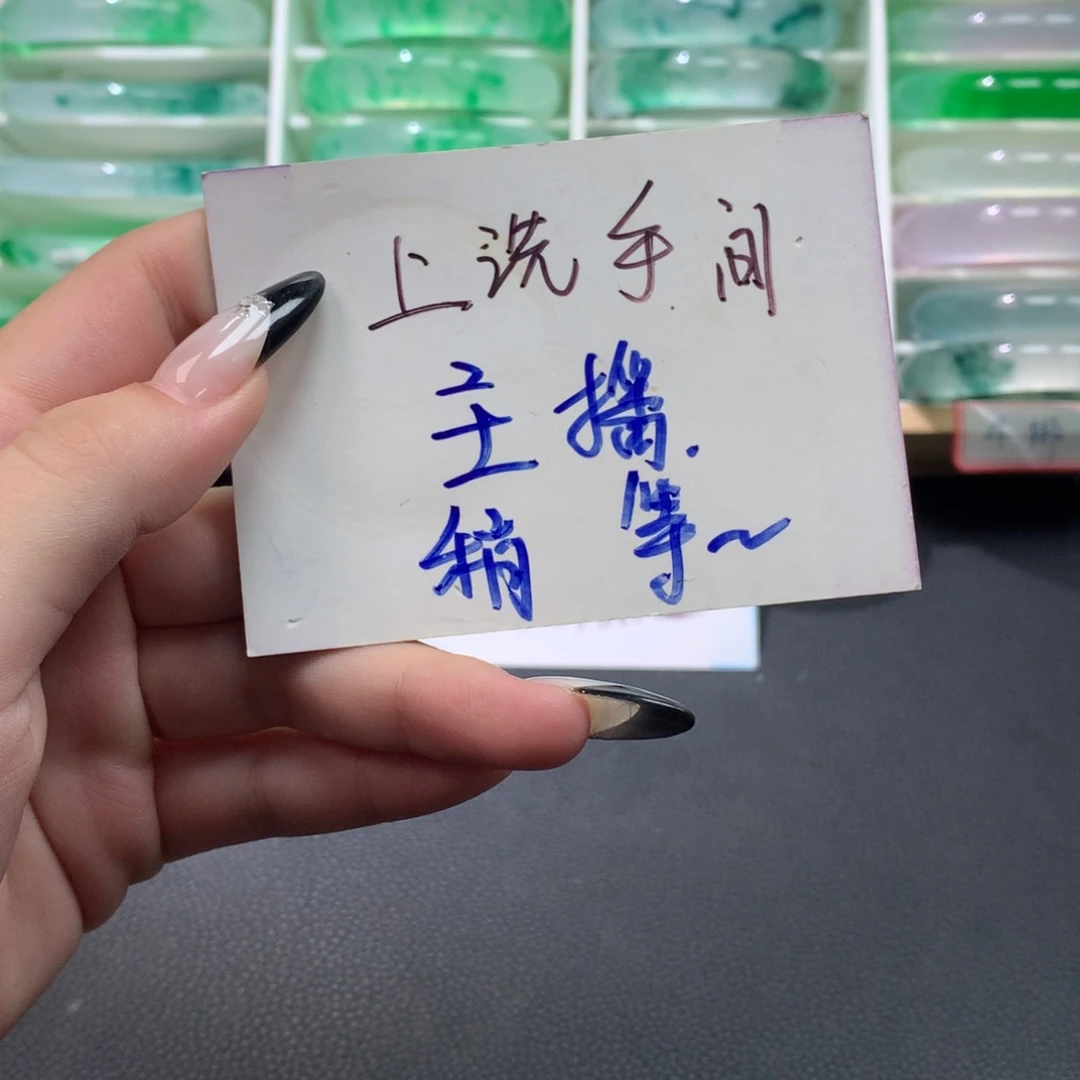 上洗手间
主播.
稍等~